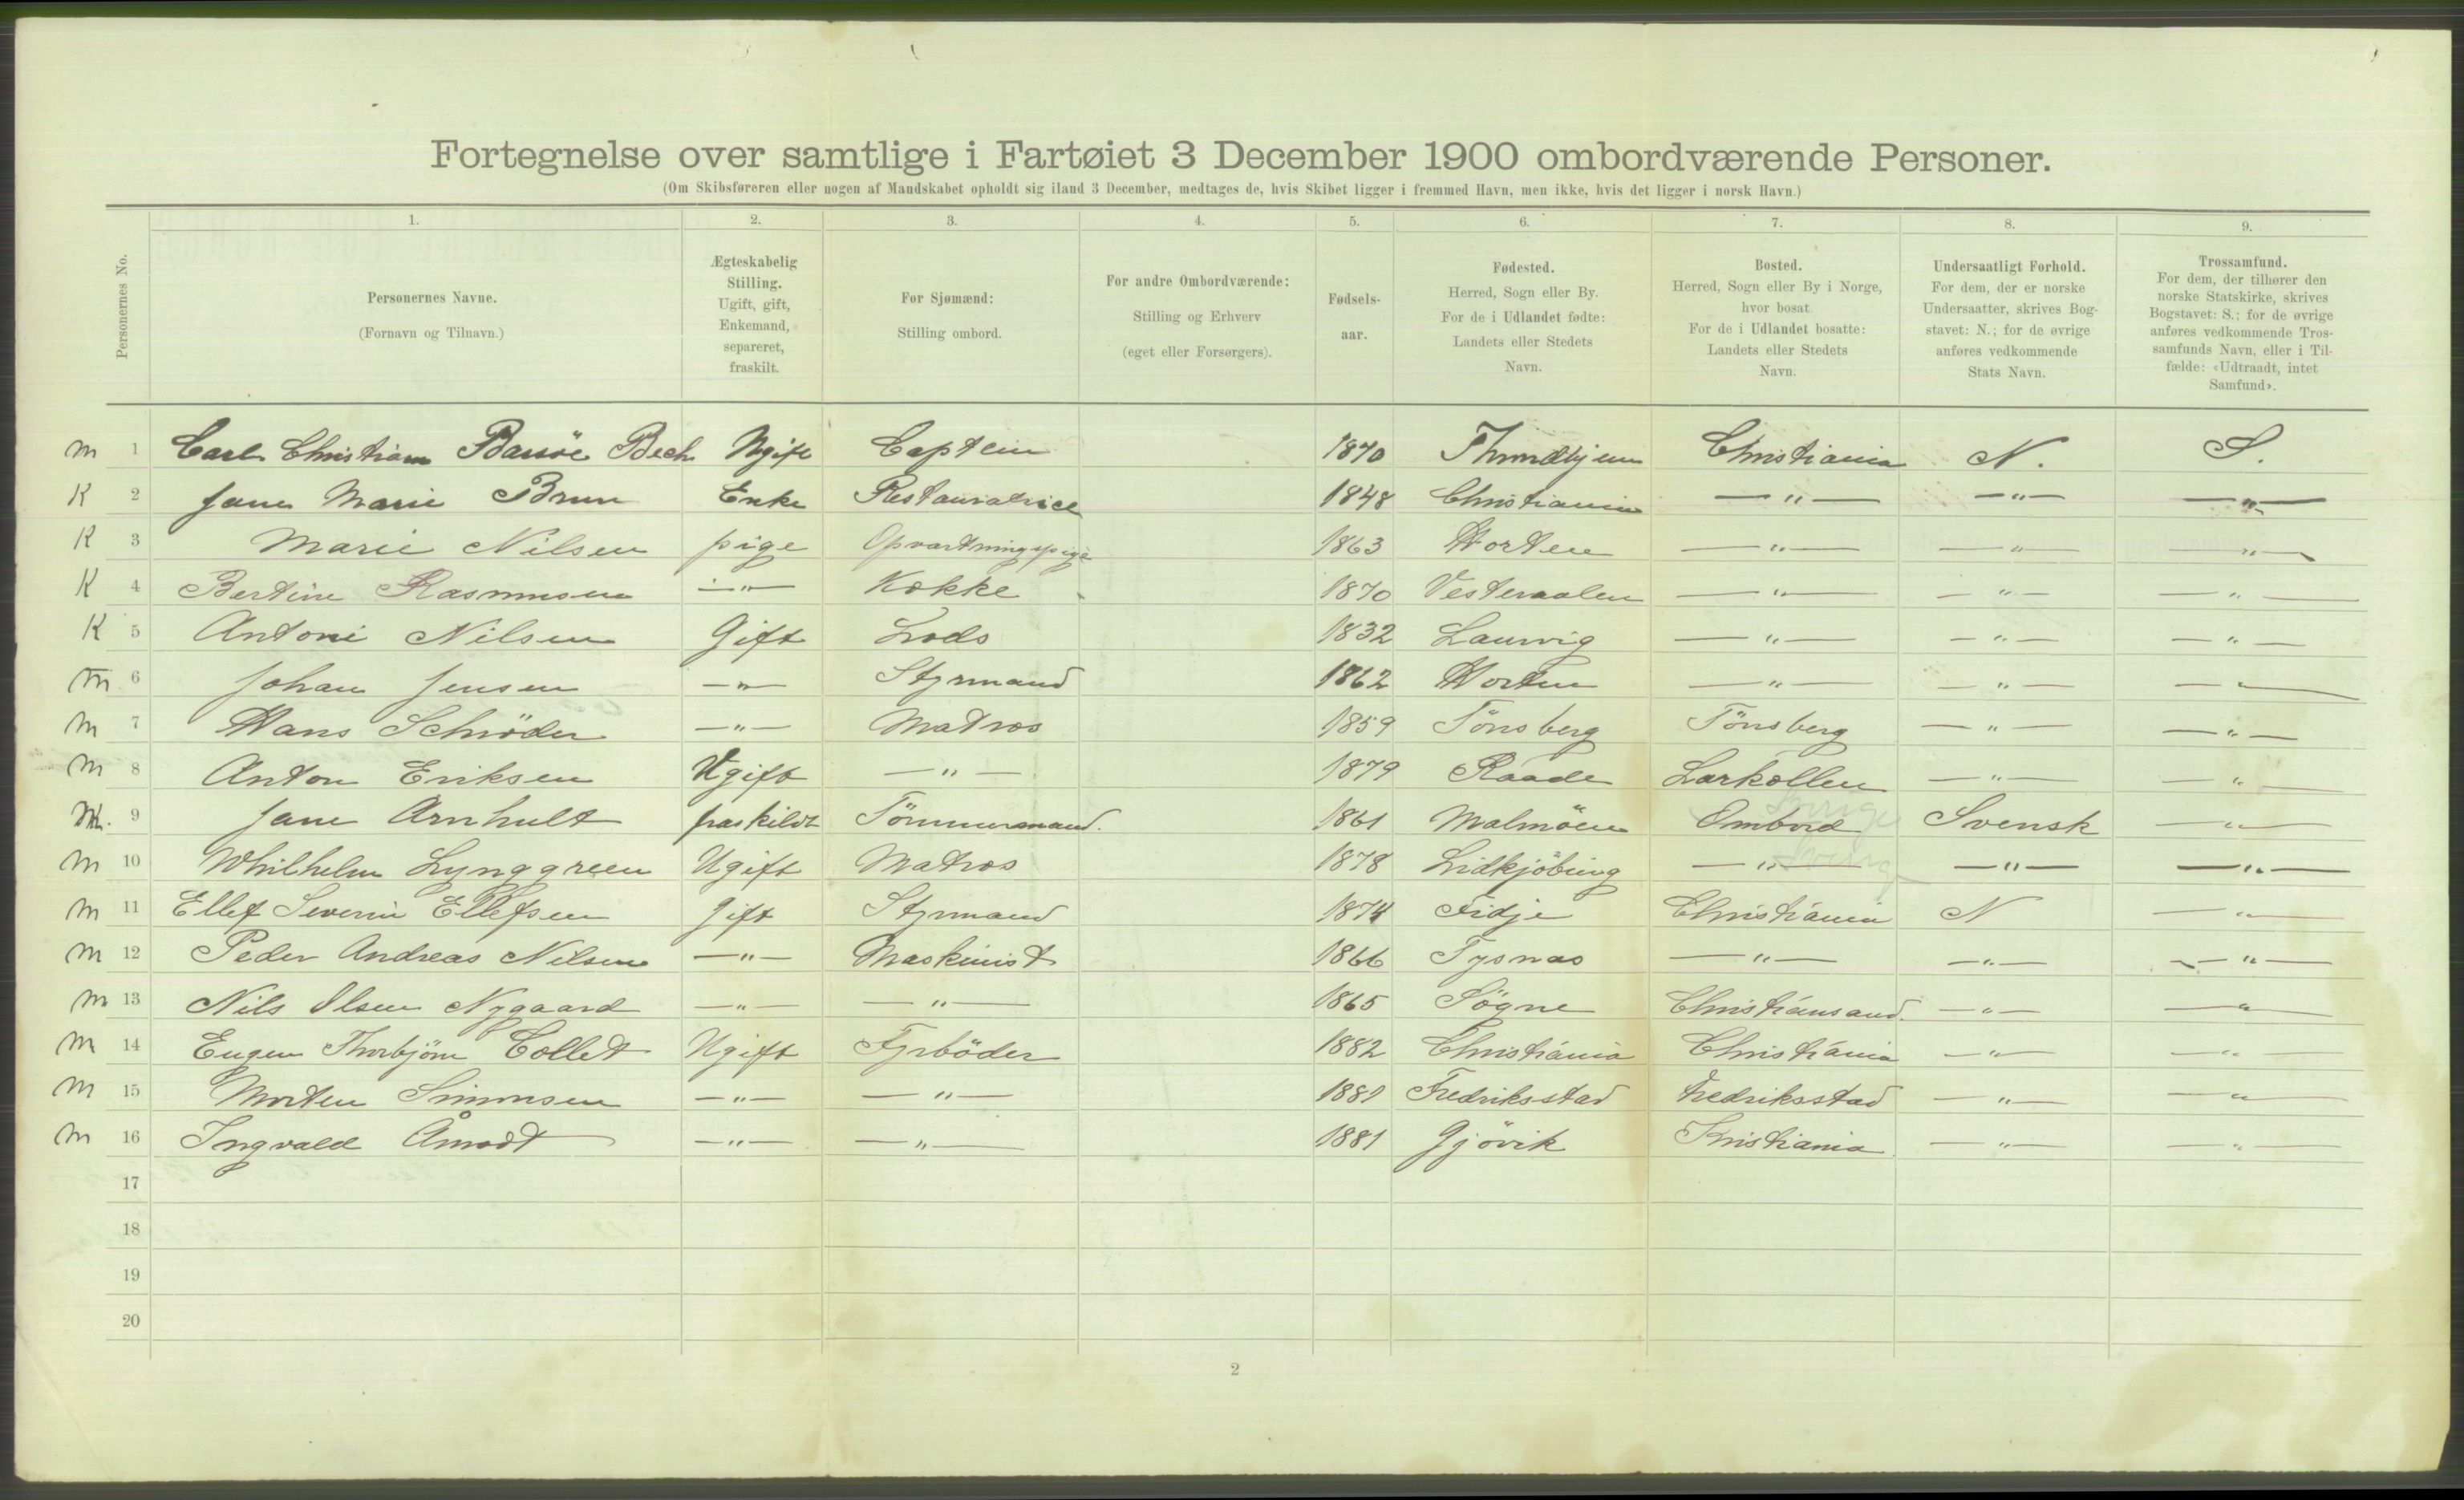 Fortegnelse over samtlige i Fartøiet 3 December 1900 ombordværende Personer.
(Om Skibsføreren eller nogen af Mandskabet opholdt sig iland 3 December, medtages de, hvis Skibet ligger i fremmed Havn, men ikke, hvis det ligger i norsk Havn.)
Personernes No.
1. Personernes Navne. (Fornavn og Tilnavn.)
2. Ægteskabelig Stilling. Ugift, gift, Enkemand, separeret, fraskilt.
3. For Sjømænd: Stilling ombord.
4. For andre Ombordværende: Stilling og Erhverv (eget eller Forsørgers).
5. Fødsels-aar.
6. Fødested. Herred, Sogn eller By. For de i Udlandet fødte: Landets eller Stedets Navn.
7. Bosted. Herred, Sogn eller By i Norge, hvor bosat. For de i Udlandet bosatte: Landets eller Stedets Navn.
8. Undersaatligt Forhold. For dem, der er norske Undersaatter, skrives Bogstavet: N.; for de øvrige anføres vedkommende Stats Navn.
9. Trossamfund. For dem, der tilhører den norske Statskirke, skrives Bogstavet: S.; for de øvrige anføres vedkommende Trossamfunds Navn, eller i Tilfælde: «Udtraadt, intet Samfund».
m 1 Carl Christian Barsöe Bech Ugift Captein 1870 Throndhjem Christiania N. S.
K 2 Jane Marie Brun Enke Restauratrice 1848 Christiania —"— —"— —"—
K 3 Marie Nilsen pige Opvartningspige 1863 Horten —"— —"— —"—
K 4 Bertine Rasmusen —"— Kokke 1870 Vesteraalen —"— —"— —"—
K 5 Antoni Nilsen Gift Lods 1832 Laurvig —"— —"— —"—
m 6 Johan Jensen —"— Styrmand 1862 Horten —"— —"— —"—
m 7 Hans Schröder —"— Matros 1859 Tönsberg Tönsberg —"— —"—
m 8 Anton Eriksen Ugift —"— 1879 Raade Larkollen —"— —"—
m. 9 Jane Arnhult fraskildt Tömmermand. 1861 Malmöen Ombord Sverige Svensk —"—
m 10 Whilhelm Lynggreen Ugift Matros 1878 Lidkjöbing —"— Sverig —"— —"—
m 11 Ellef Severin Ellefsen gift Styrmand 1874 Fidje Christiania N —"—
m 12 Peder Andreas Nilsen —"— Maskinist 1866 Tysnas —"— —"— —"—
m 13 Nils Olsen Nygaard —"— —"— 1865 Sögne Christiansand. —"— —"—
m 14 Eugen Thorbjörn Collet Ugift Fyrböder 1882 Christiania Christiania —"— —"—
m 15 Morten Simonsen —"— —"— 1881 Fredriksstad Fredriksstad —"— —"—
m 16 Ingvald Åmodt —"— —"— 1881 Gjövik Kristiania —"— —"—
17
18
19
20
2